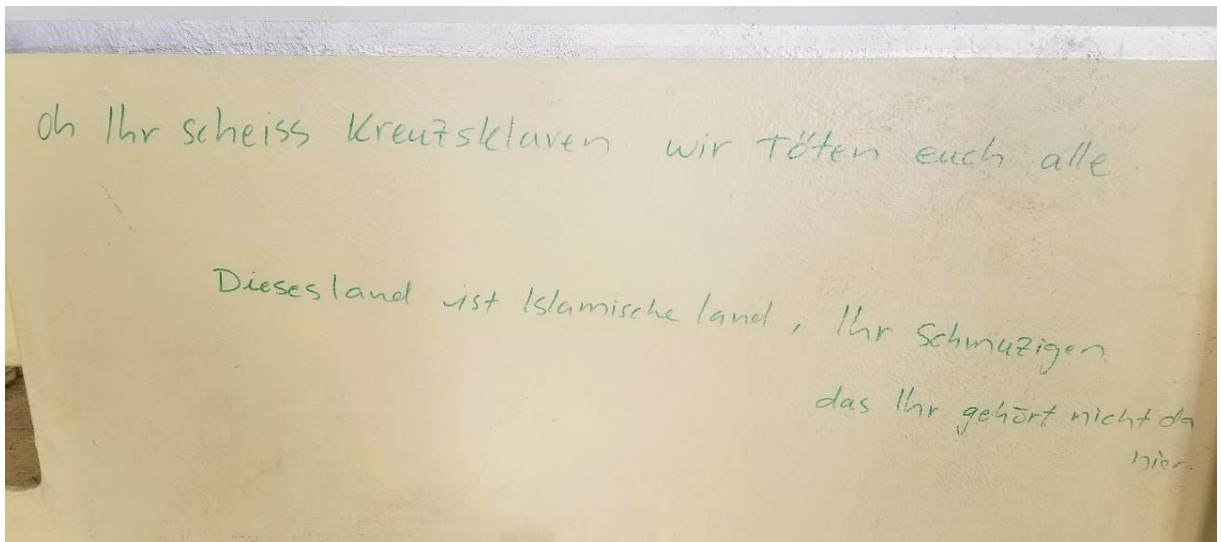 oh Ihr scheiss Kreuzsklaven wir Töten euch alle.
Dieses land ist Islamische land, Ihr Schmuzigen
das Ihr gehört nicht da
hier.